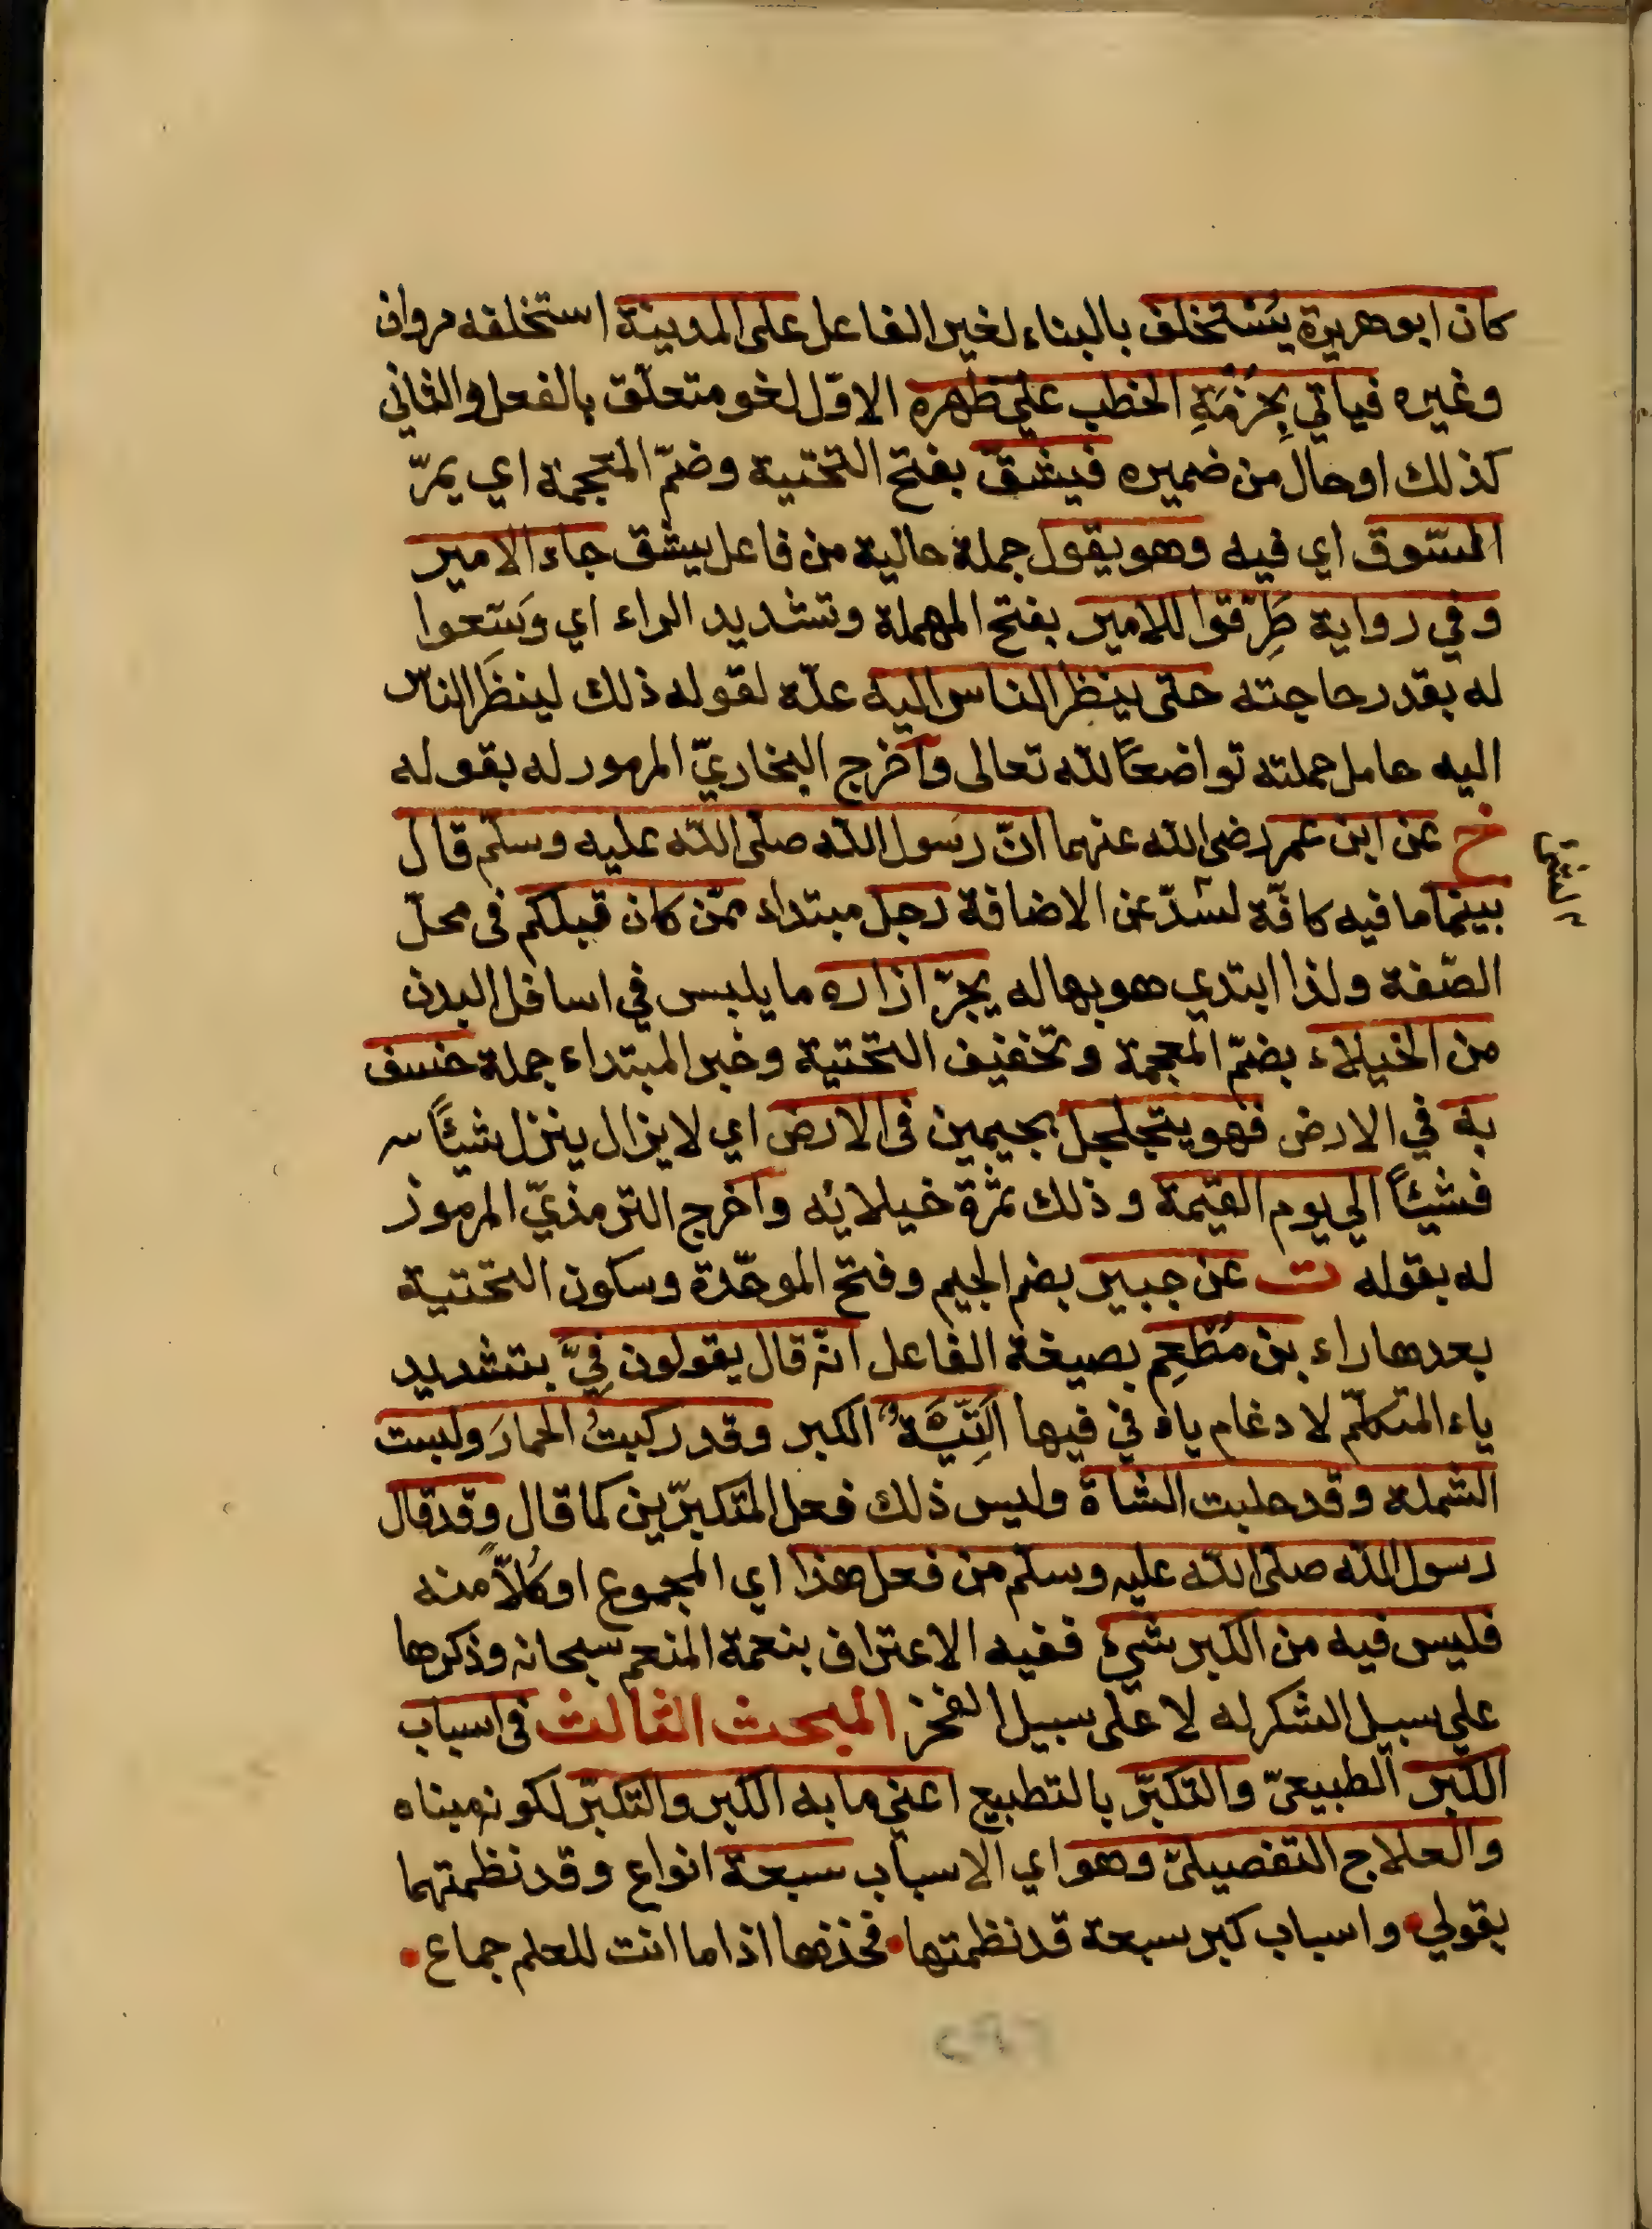 كان ابو هريرة يُسْتخلف بالبناء لغير الفاعل على المدينة استخلفه مروان
وغيره فياتي بحُزْمَةِ الحطب على ظهره الاوّل لغو متعلّق بالفعل والثاني
كذلك او حال من ضميره فيشقّ بفتح التحتية وضمّ المعجمة اي يمرّ
السّوق اي فيه وهو يقول جملة حالية من فاعل يشق جاء الامير
وفي رواية طَرِّقوا للامير بفتح المهملة وتشديد الراء اي وَسّعوا
له بقدر حاجته حتى ينظر الناس اليه علّة لقوله ذلك لينظَر الناس
اليه حامل حملته تواضعًا لله تعالى وأخرج البخاريّ المرموز له بقوله
خ عن ابن عمر رضى الله عنهما انّ رسول الله صلّى الله عليه وسلّم قال
بينما ما فيه كافّة لسدّ عن الاضافة رجل مبتداء ممّن كان قبلكم فى محلّ
الصّفة ولذا ابتدي هو بها له يجرّ ازاره ما يلبس في اسافل البدن
من الخيلاء بضمّ المعجمة وتخفيف التحتية وخبر المبتداء جملة خسف
به في الارض فهو يتجلجل بجيمين فى الارض اي لا يزال ينزل شيئًا
فشيئًا الى يوم القيمة وذلك ثمرة خيلائه وأخرج الترمذيّ المرموز
له بقوله ت عن جبير بضم الجيم وفتح الموحّدة وسكون التحتية
بعدها راء بن مُطْعِم بصيغة الفاعل انّه قال يقولون فِيَّ بتشديد
ياء المتكلّم لادغام ياء في فيها التِّيهَ الكبر وقد ركبتُ الحمارَ ولبست
الشملة وقد حلبت الشاة وليس ذلك فعل المتكبّرين كما قال وقد قال
رسول الله صلّى الله عليه وسلّم من فعل هذا اي المجموع او كُلًّا منه
فليس فيه من الكبر شيء ففيه الاعتراف بنعمة المنعم سبحانه وذكرها
على سبيل الشكر له لا على سبيل الفخر المبحث الثالث فى اسباب
الكبر الطبيعيّ والتكبّر بالتطبيع اعني ما به الكبر والتكبّر لكونه مبناه
والعلاج التفصيلىّ وهو اي الاسباب سبعة انواع وقد نظمتهما
بقولي • واسباب كبر سبعة قد نظمتها • فخذها اذا ما انت للعلم جماع •